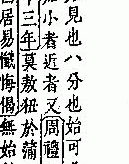 見也八分也始可
小者近者又周禮
三年莫敖狃於蒲
居易懺悔偈無始